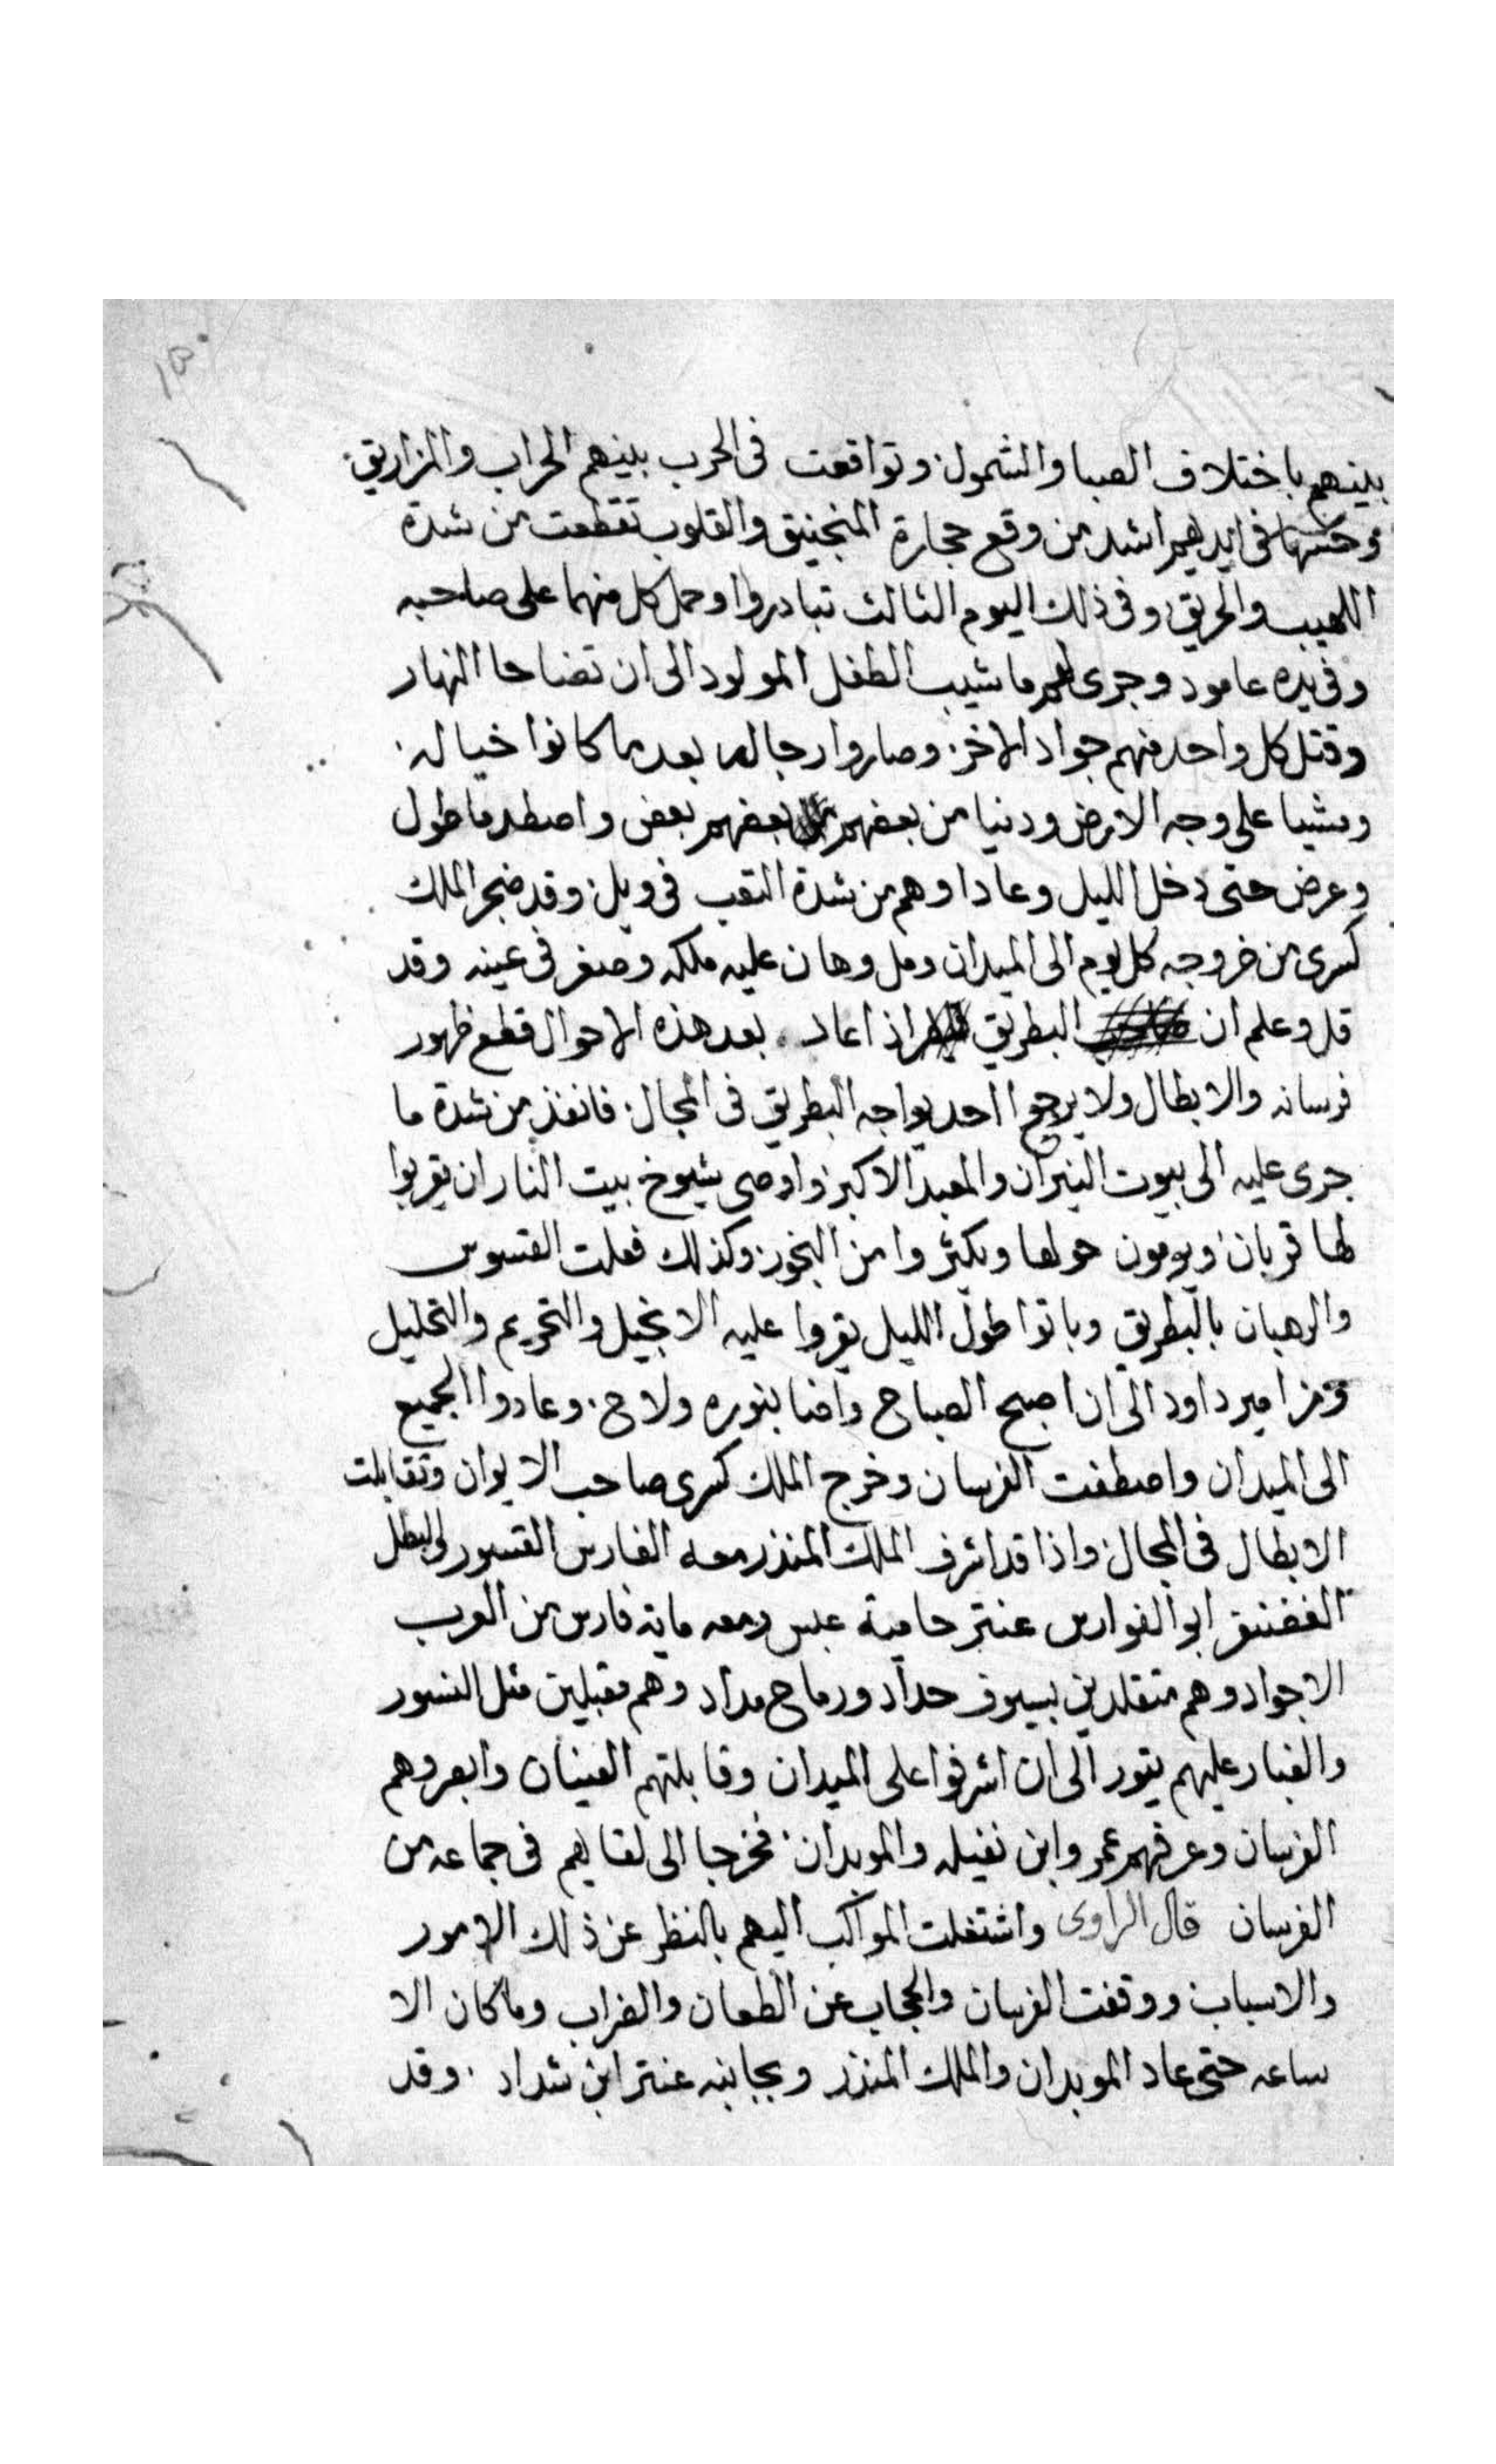 بينهم باختلاف الصبا والشمول. وتواقعت فى الحرب بينهم الحراب والمزاريق.
وحسها فى ايديهم اشد من وقع حجارة المنجنيق والقلوب تقطعت من شدة
اللهيب والحريق. وفى ذلك اليوم الثالث تبادروا وحمل كل منهما على صاحبه
وفى يده عامود وجرى لهم ما شيب الطفل المولود الى ان تضاحا النهار
وقتل كل واحد منهم جواد الاخر. وصاروا رجاله بعد ما كانوا خياله.
ومشيا على وجه الارض ودنيا من بعضهم بعضهم بعض واصطدما طول
وعرض حتى دخل الليل وعادا وهم من شدة التعب فى ويل. وقد ضجر الملك
كسرى من خروجه كل يوم الى الميدان ومل وهان عليه ملكه وصغر فى عينه وقد
قل وعلم ان البطريق اذا عاد. بعد هذه الاحوال قطع ظهور
فرسانه والابطال ولا يرجع احد يواجه البطريق فى المجال. فانفذ من شدة ما
جرى عليه الى بيوت النيران والمعبد الاكبر واوصى شيوخ بيت النار ان يقربوا
لها قربان. ويومون حولها ويكثروا من البخور. وكذلك فعلت القسوس
والرهبان بالبطريق وباتوا طول الليل يقروا عليه الانجيل والتحريم والتحليل
ومزامير داود الى ان اصبح الصباح واضا بنوره ولاح. وعادوا الجميع
الى الميدان واصطفت الفرسان وخرج الملك كسرى صاحب الايوان وتقابلت
الابطال فى المجال. واذا قد اشرف الملك المنذر معه الفارس القسور والبطل
الغضنفر ابو الفوارس عنتر حامية عبس ومعه ماية فارس من العرب
الاجواد وهم متقلدين بسيوف حداد ورماح مداد وهم مقبلين مثل النسور
والغبار عليهم يثور الى ان اشرفوا على الميدان وقابلتهم العينان وابصروهم
الفرسان وعرفهم عمر وابن نفيله والموبدان. فخرجا الى لقايهم فى جماعه من
الفرسان قال الراوى واشتغلت المواكب اليهم بالنظر عن ذلك الامور
والاسباب ووقفت الفرسان والحجاب عن الطعان والضراب وما كان الا
ساعه حتى عاد الموبدان والملك المنذر وبجانبه عنتر ابن شداد. وقد